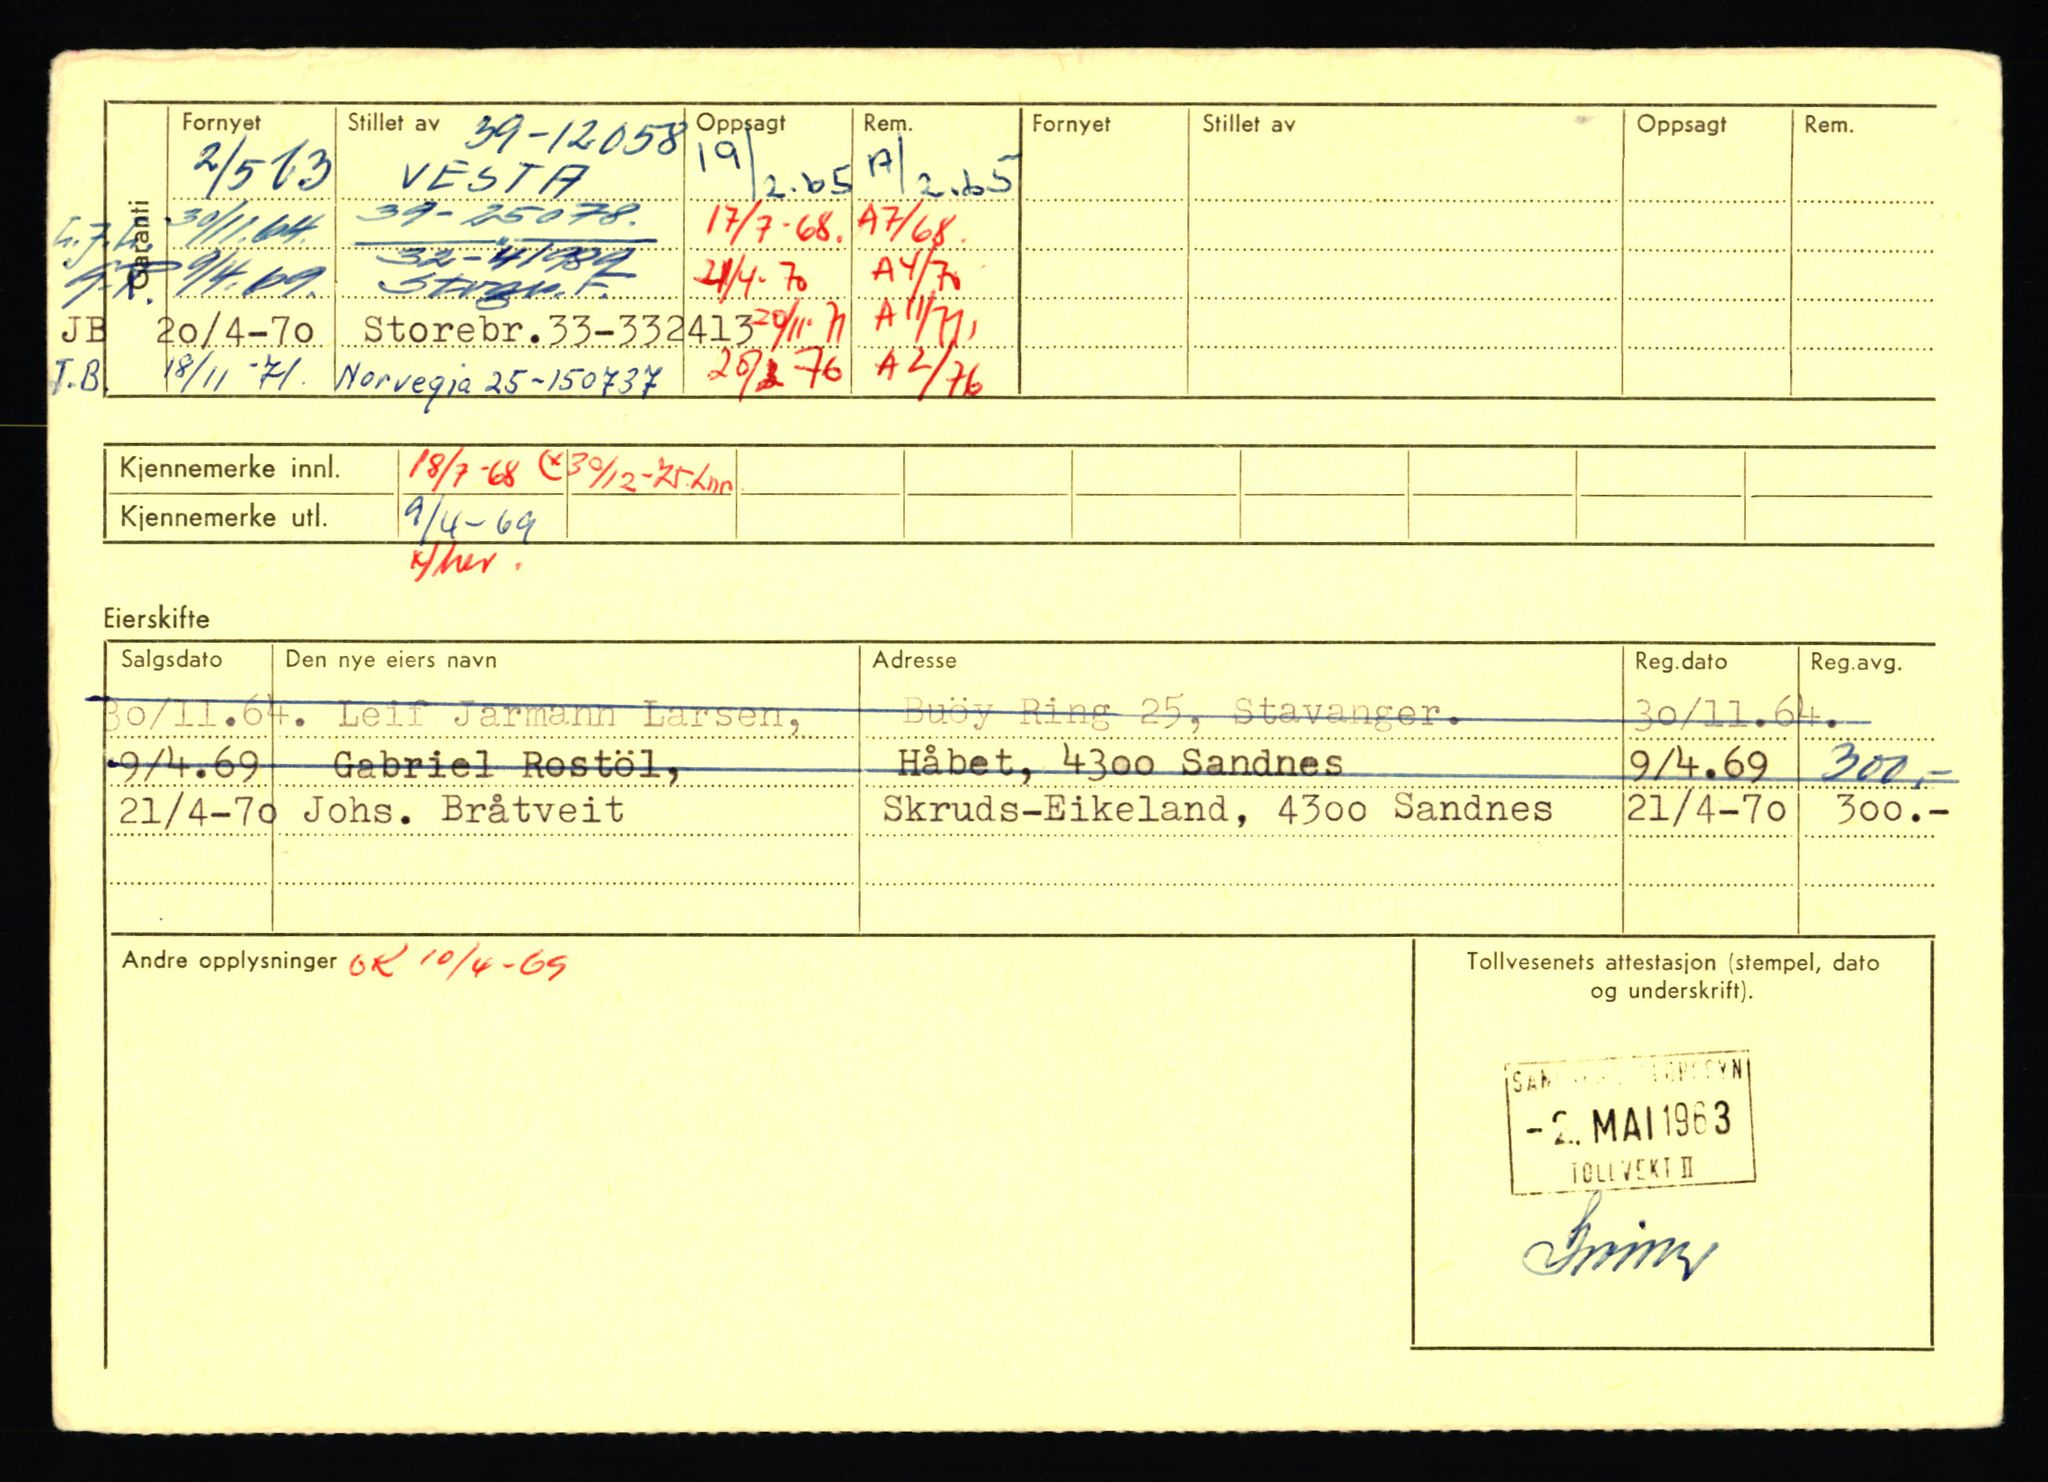 Garanti
Fornyet Stillet av Oppsagt Rem. Fornyet Stillet av Oppsagt Rem.
39-12058
2/5 63 VESTA 19/2.65 A/2.65
L.J.L. 30/11.64. 39-25078. 17/7-68. A7/68.
G.R. 9/4.69. 32-41989 21/4-70 A4/70
JB 20/4-70 Storebr.33-332413 20/11-71 A11/71
J.B. 18/11-71. Norvegia 25-150737 20/2 76 A2/76
Kjennemerke innl. 18/7-68 (x 30/12-75.
Kjennemerke utl. 9/4-69
x/her.
Eierskifte
Salgsdato Den nye eiers navn Adresse Reg.dato Reg.avg.
30/11.64. Leif Jarmann Larsen, Buöy Ring 25, Stavanger. 30/11.64.
9/4.69 Gabriel Rostöl, Håbet, 4300 Sandnes 9/4.69 300,-
21/4-70 Johs. Bråtveit Skruds-Eikeland, 4300 Sandnes 21/4-70 300.-
Andre opplysninger OK 10/4-69
Tollvesenets attestasjon (stempel, dato
og underskrift).
-2. MAI 1963
TOLLVEKT II